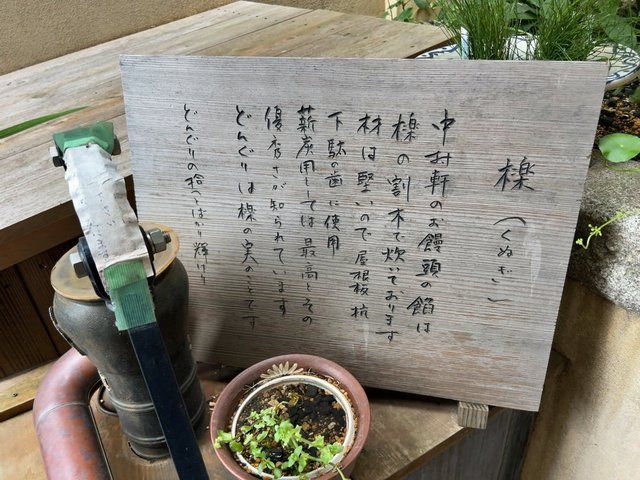 櫟（くぬぎ）
中村軒のお饅頭の餡は
櫟の割木で炊いております
材は堅いので屋根板、杭
下駄の歯に使用
薪炭用としては最高とその
優良さが知られています
どんぐりは櫟の実のことです
どんぐりの拾へとばかり輝けり